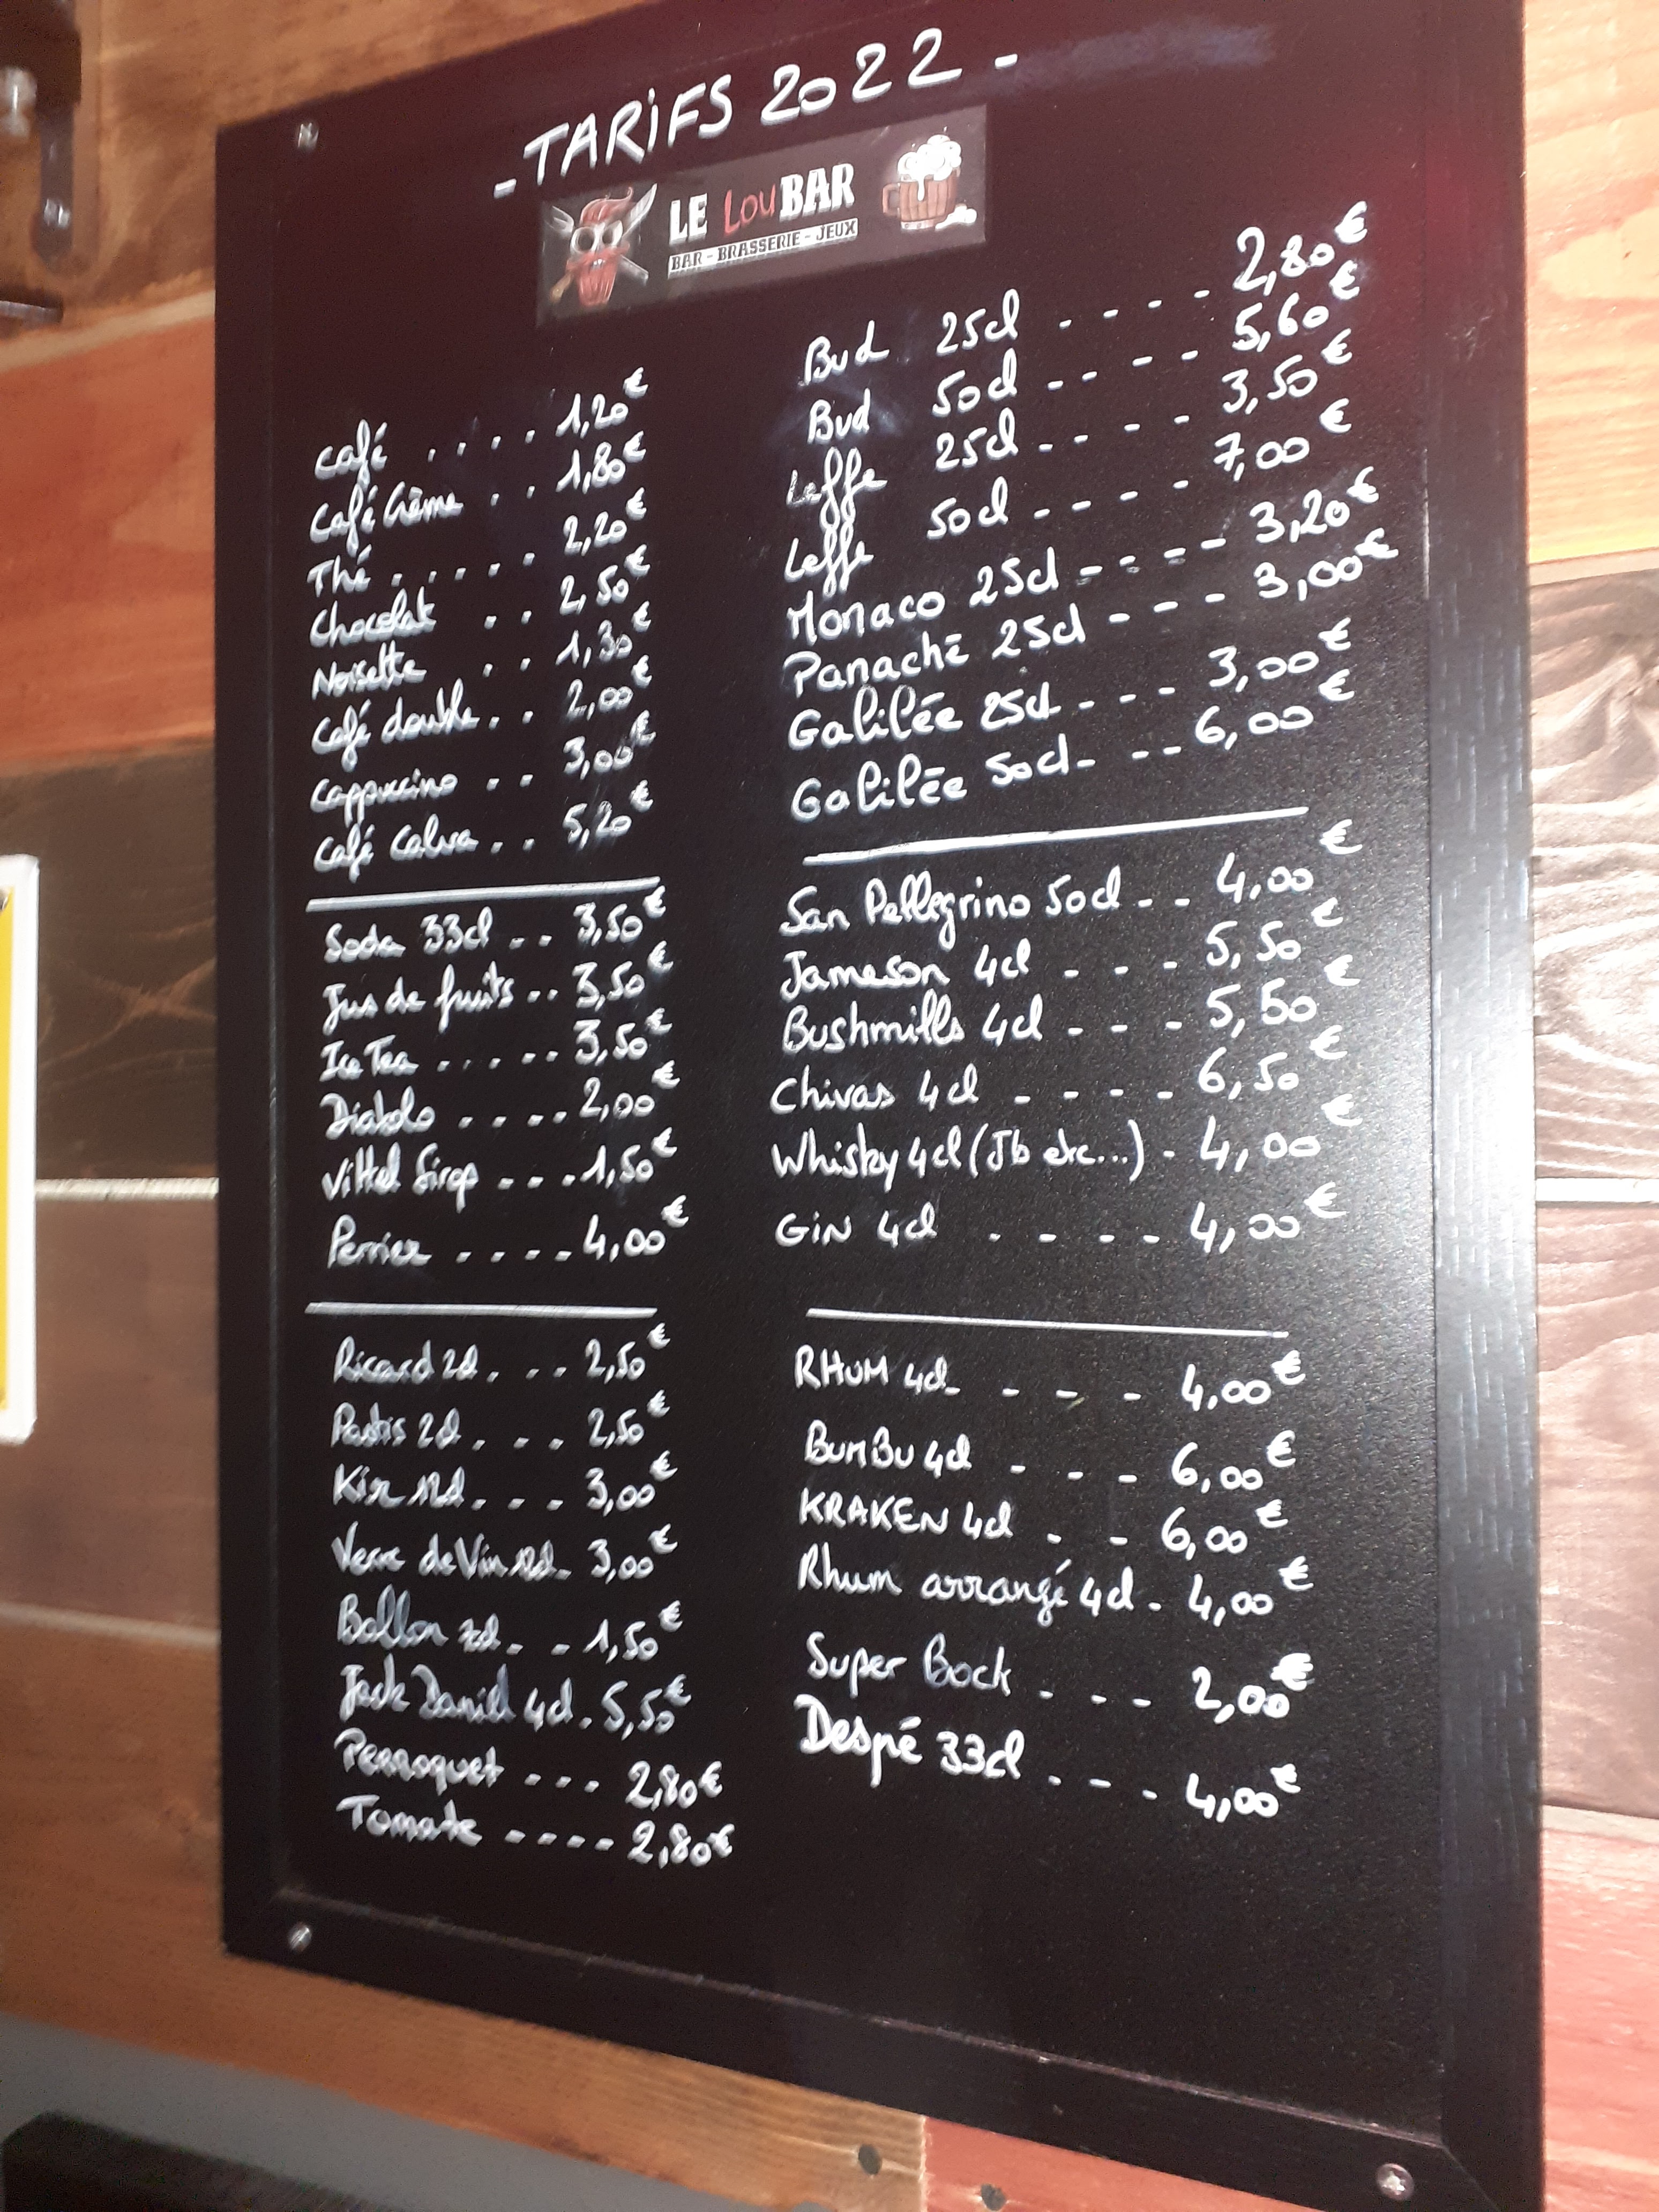 - TARiFS 2022 -
LE LouBAR
BAR - BRASSERIE - JEUX
Café . . . . 1,20€
Café Crème . . 1,80€
Thé . . . . . 2,20€
Chocolat . . 2,50€
Noisette . . 1,30€
Café double . . 2,00€
Cappuccino . . 3,00€
Café Calva . . 5,20€
Soda 33cl . . 3,50€
Jus de fruits . . 3,50€
Ice Tea . . . . . 3,50€
Diabolo . . . . 2,00€
Vittel Sirop - - - 1,50€
Perrier . . . . 4,00€
Ricard 2cl . . . 2,50€
Pastis 2cl . . . 2,50€
Kir 12cl . . . 3,00€
Verre de Vin 12cl - 3,00€
Ballon . . 1,50€
Jack Daniel 4cl . 5,50€
Perroquet - - - 2,80€
Tomate - - - - 2,80€
Bud 25cl - - - - 2,80€
Bud 50cl - - - - 5,60€
Leffe 25cl - - - - 3,50€
Leffe 50cl - - - - 7,00€
Monaco 25cl - - - - 3,20€
Panaché 25cl - - - 3,00€
Galilée 25cl - - - 3,00€
Galilée 50cl - - - 6,00€
San Pellegrino 50cl - - 4,00€
Jameson 4cl - - - 5,50€
Bushmills 4cl - - - 5,50€
Chivas 4cl - - - - 6,50€
Whisky 4cl (Jb etc...) - 4,00€
GiN 4cl - - - - 4,00€
RHUM 4cl - - - - 4,00€
BUMBU 4cl - - - 6,00€
KRAKEN 4cl - - 6,00€
Rhum arrangé 4cl - 4,00€
Super Bock - - - 2,00€
Despé 33cl - - - 4,00€